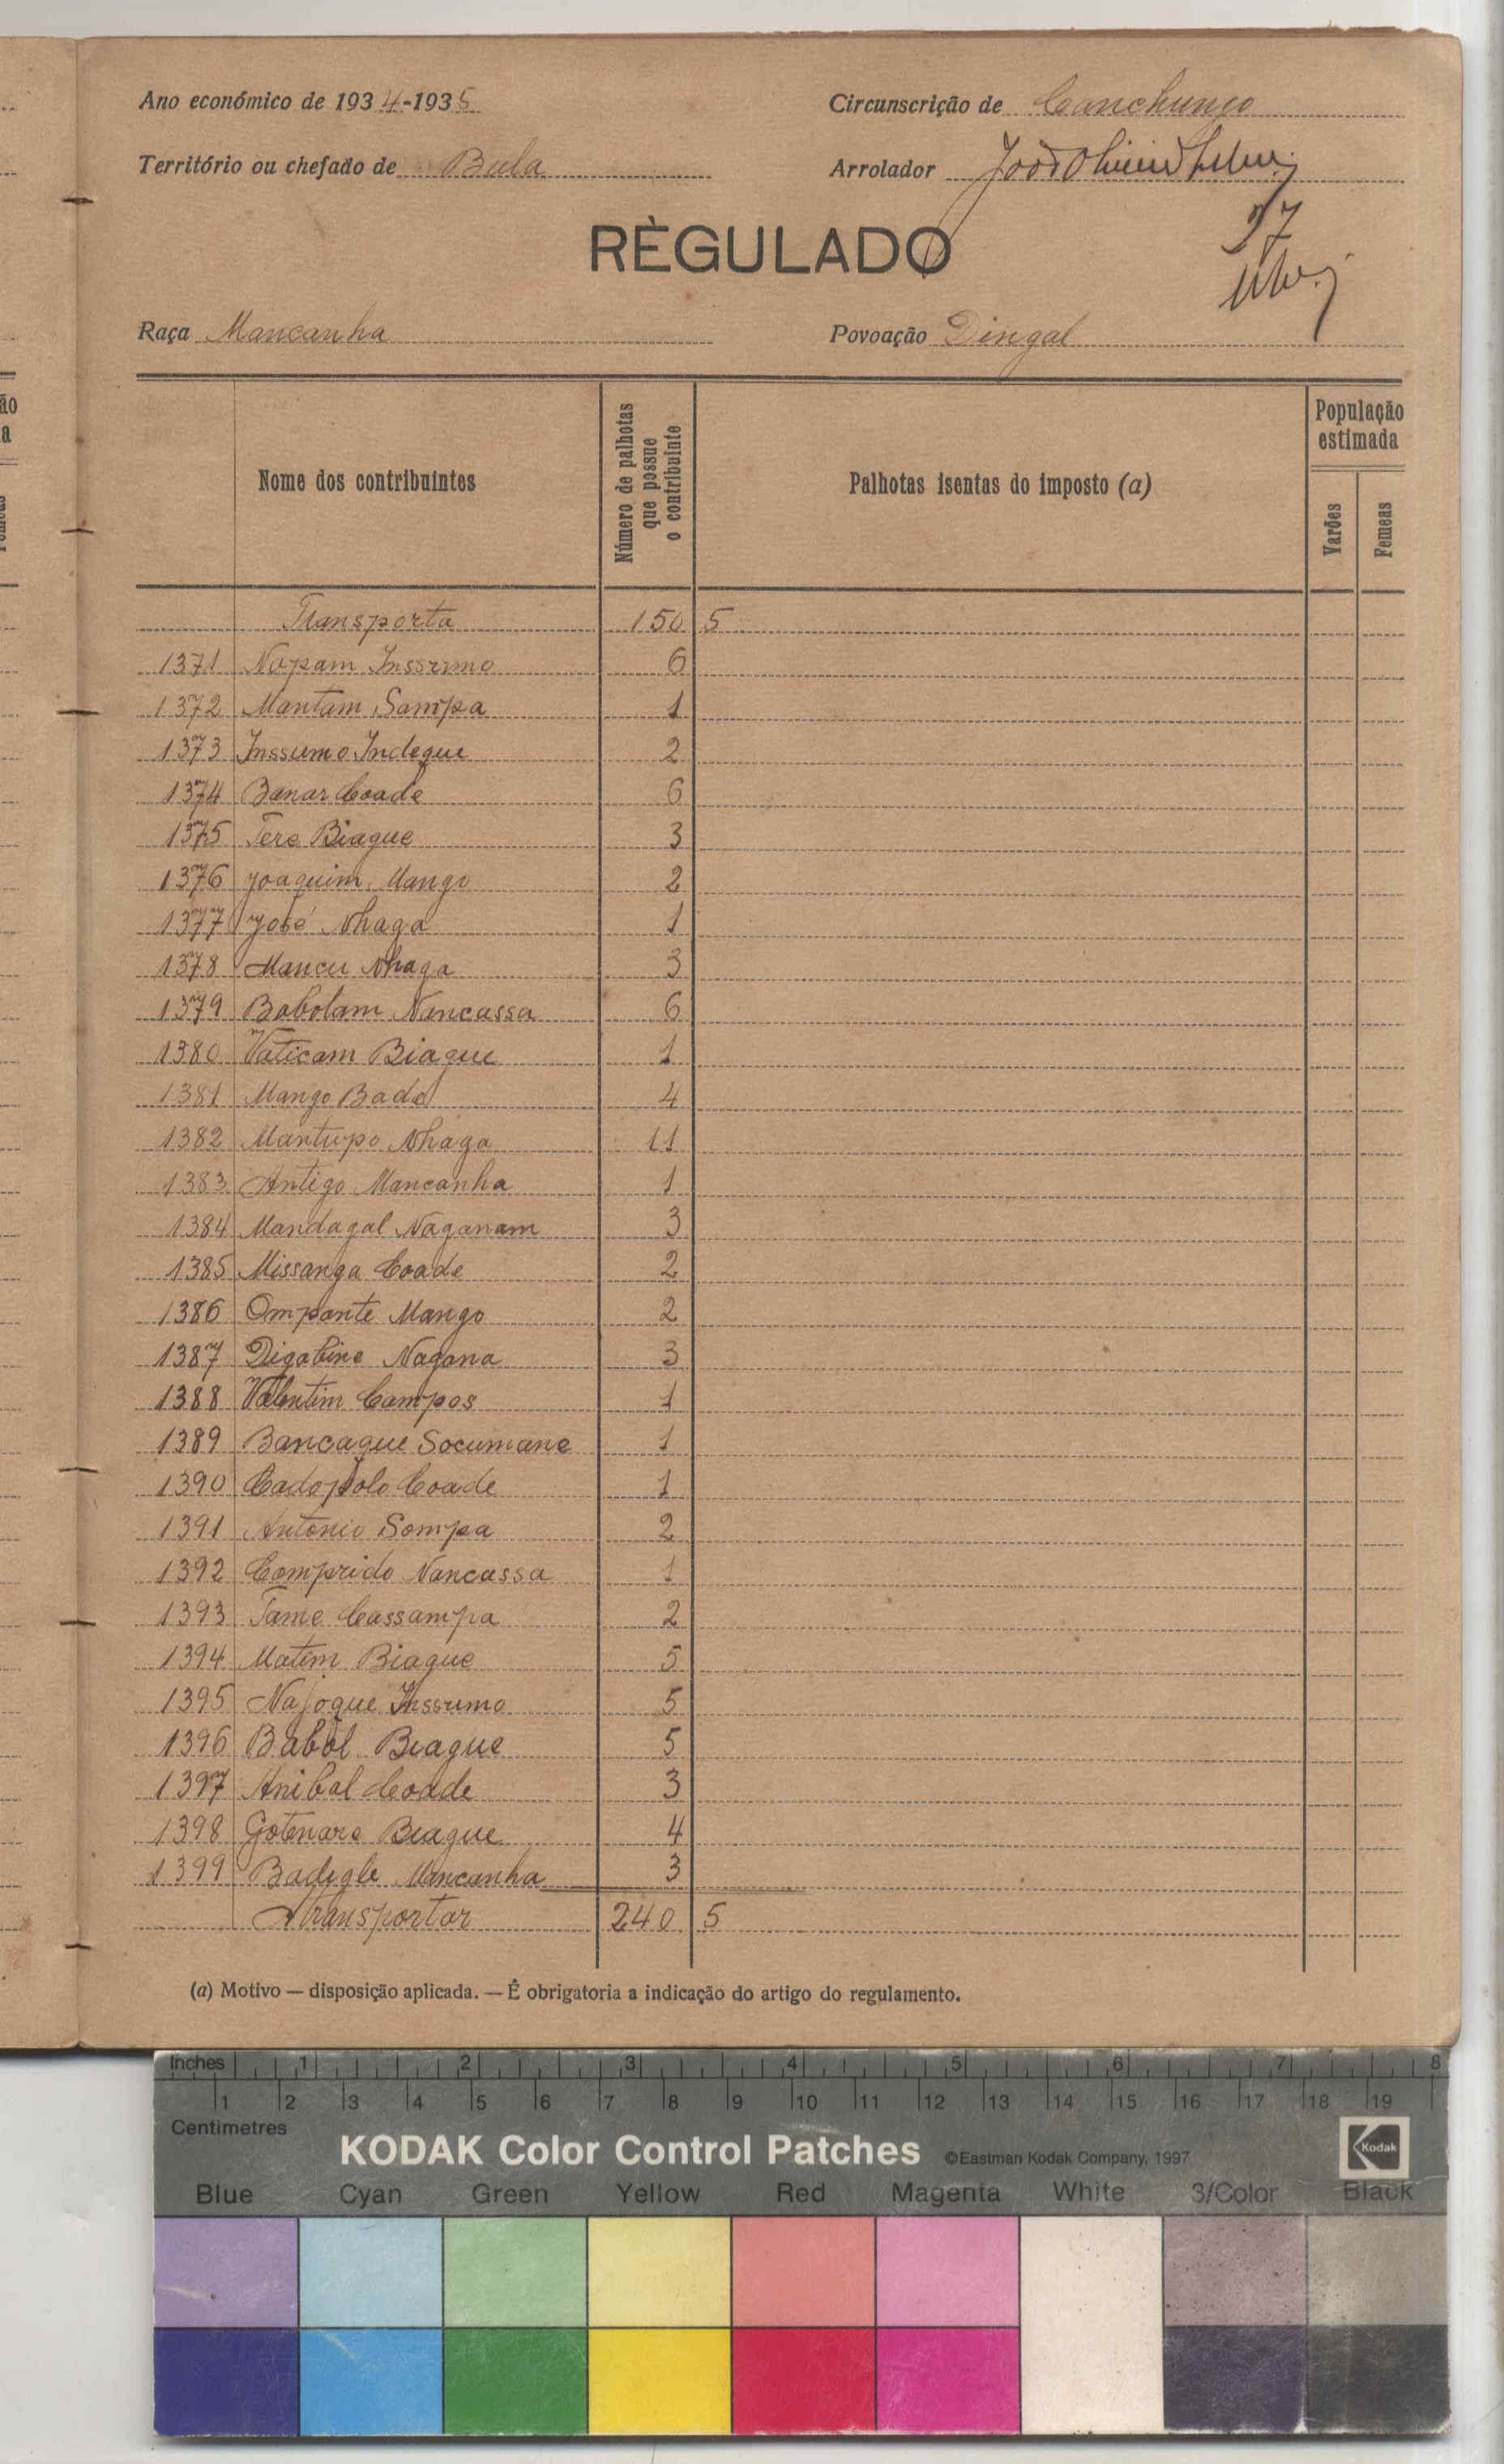 Ano económico de 1934-1935
Circunscrição de Canchungo
Território ou chefado de Bula
Arrolador
97
RÈGULADO
Raça Mancanha
Povoação Dingal
Nome dos contribuintes
Número de palhotas que possue o contribuinte
Palhotas isentas do imposto (a)
População estimada
Varões
Femeas
Transporta 150 5
1371 Napam Inssumo 6
1372 Mantam Sampa 1
1373 Inssumo Indeque 2
1374 Banar Coade 6
1375 Tere Biague 3
1376 Joaquim Mango 2
1377 José Nhaga 1
1378 Mancu Nhaga 3
1379 Babolam Nancassa 6
1380 Vaticam Biague 1
1381 Mango Bade 4
1382 Mantupo Nhaga 11
1383 Antigo Mancanha 1
1384 Mandagal Naganam 3
1385 Missanga Coade 2
1386 Ompante Mango 2
1387 Digabine Nagana 3
1388 Valentim Campos 1
1389 Bancaque Socumane 1
1390 Cadopolo Coade 1
1391 Antonio Sampa 2
1392 Comprido Nancassa 1
1393 Tame Cassampa 2
1394 Matim Biague 5
1395 Najoque Inssumo 5
1396 Babol Biague 5
1397 Anibal Coade 3
1398 Gotenare Biague 4
1399 Badigle Mancanha 3
A transportar 240 5
(a) Motivo — disposição aplicada. — É obrigatoria a indicação do artigo do regulamento.
Inches 1 2 3 4 5 6 7 8
1 2 3 4 5 6 7 8 9 10 11 12 13 14 15 16 17 18 19
Centimetres
KODAK Color Control Patches ©Eastman Kodak Company, 1997 Kodak
Blue Cyan Green Yellow Red Magenta White 3/Color Black